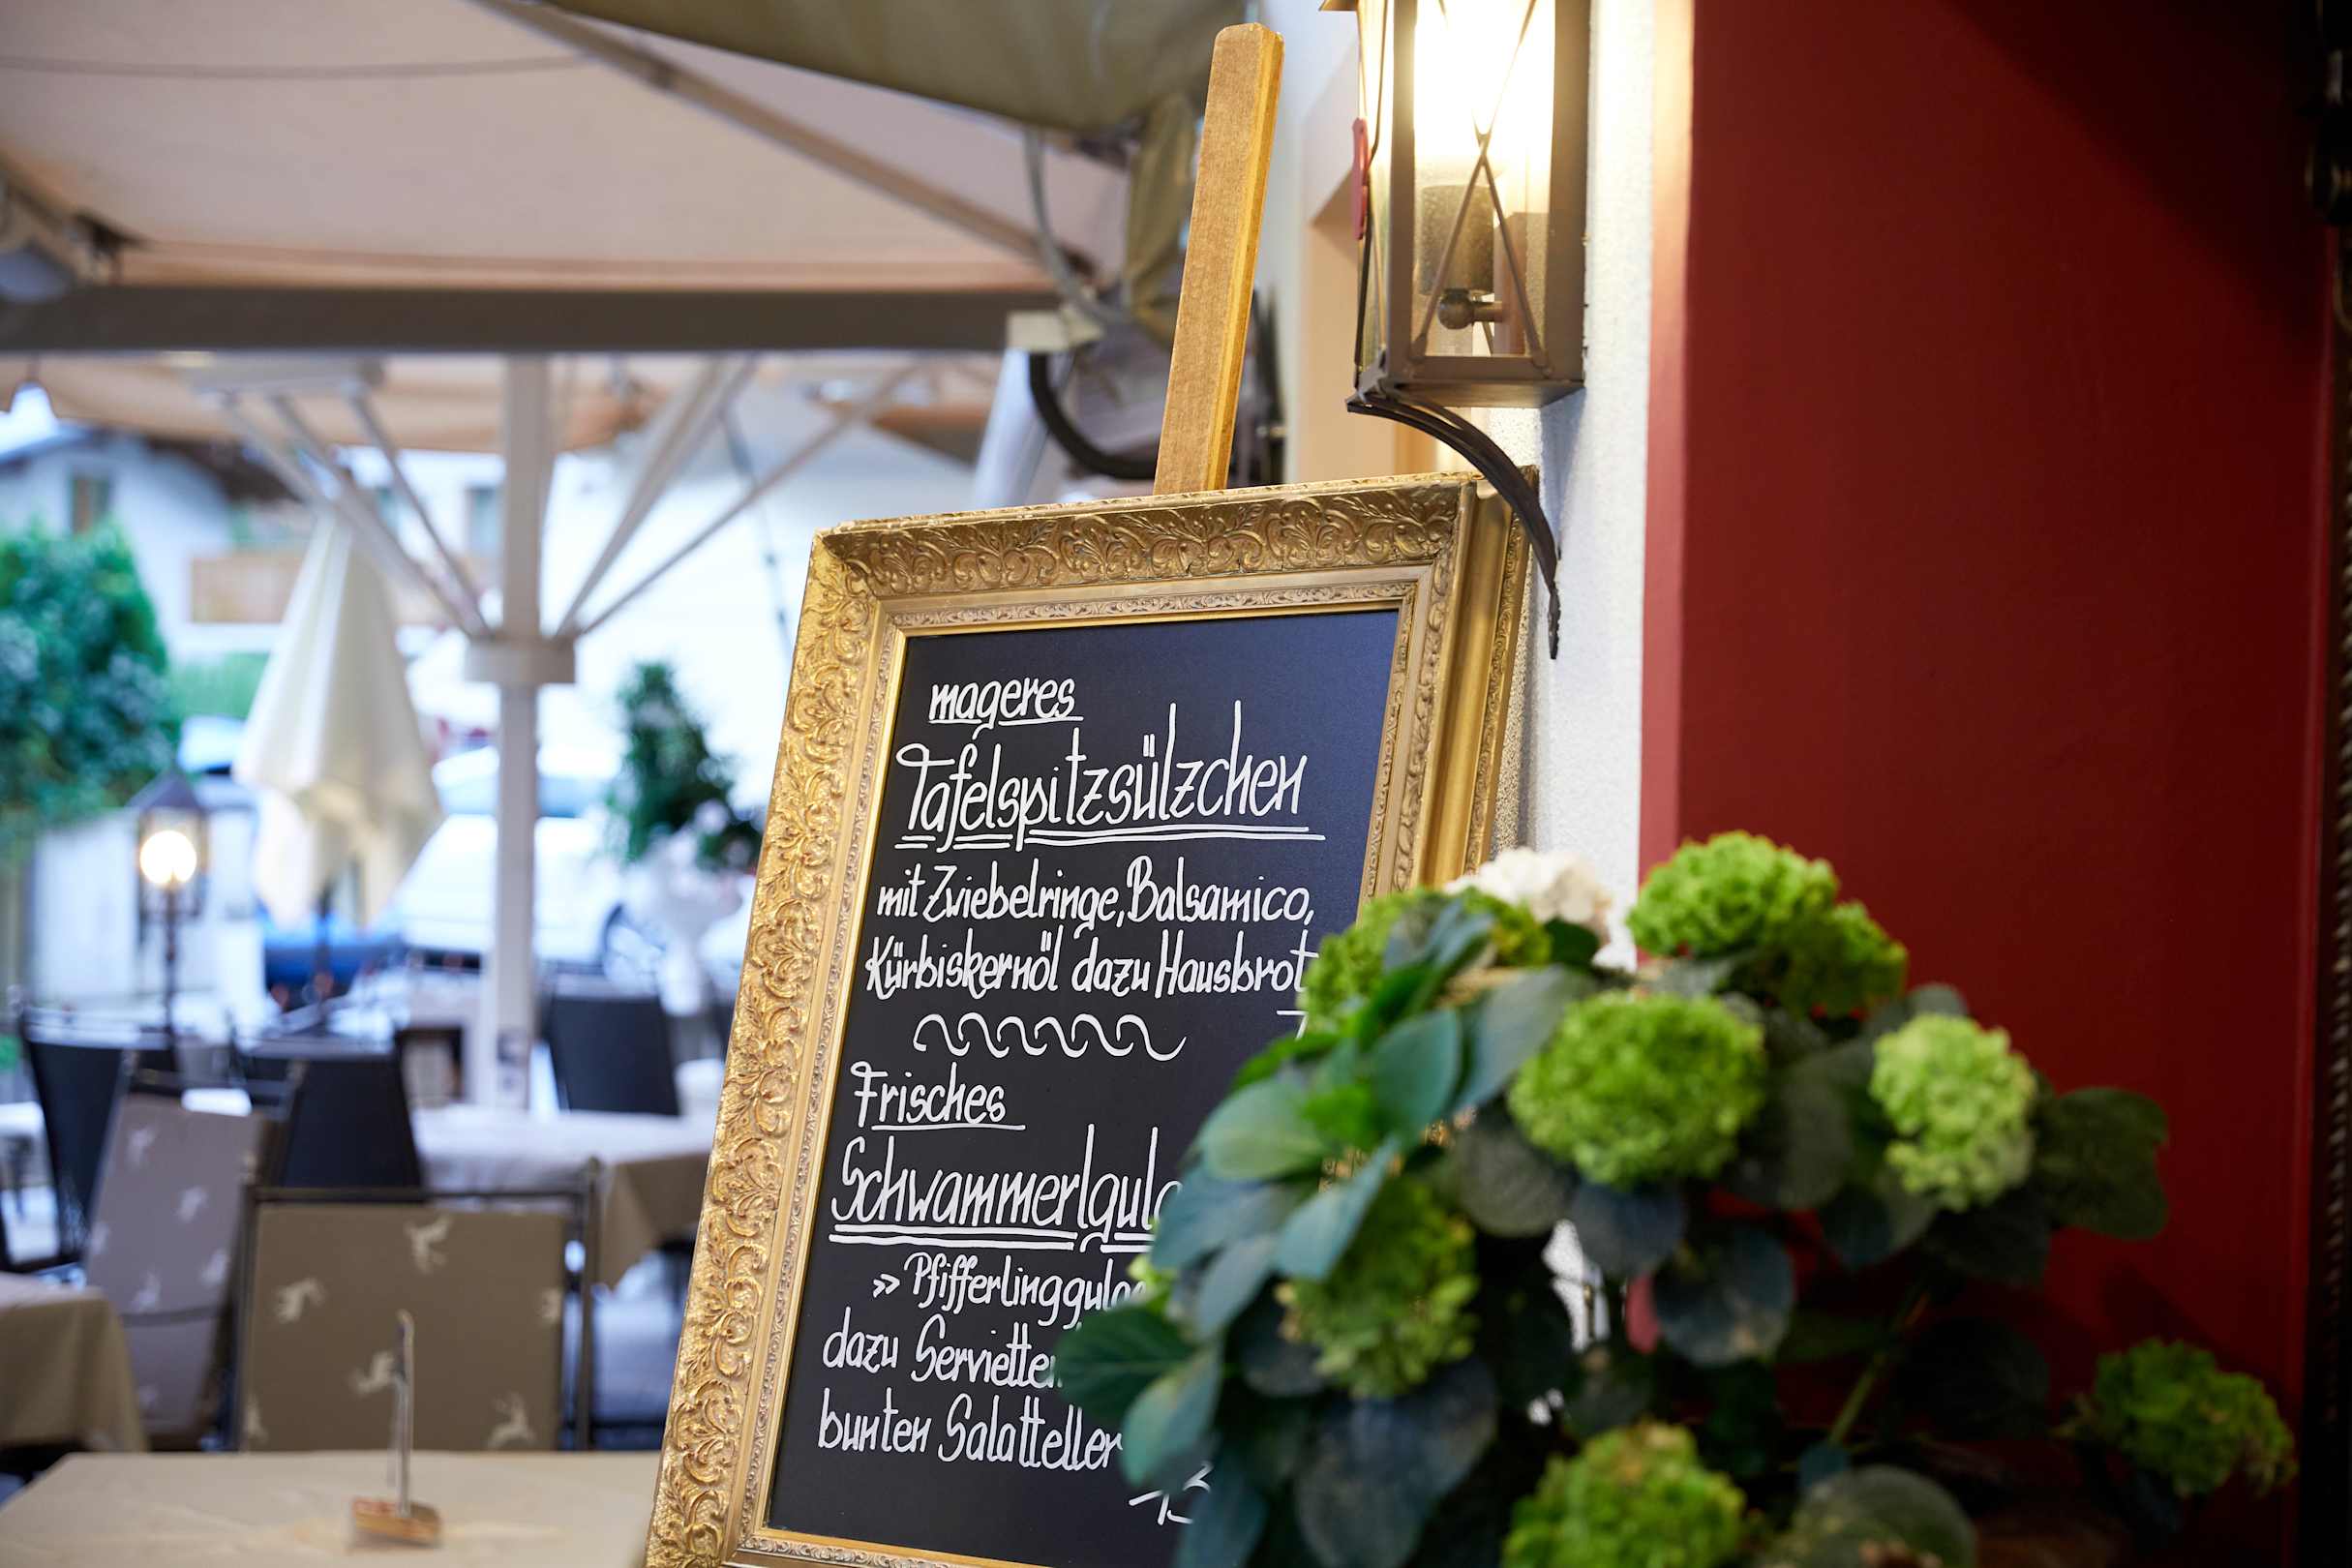 mageres
Tafelspitzsülzchen
mit Zwiebelringe, Balsamico,
Kürbiskernöl dazu Hausbrot
Frisches
Schwammerlgula
» Pfifferlinggulas
dazu Servietten
bunten Salatteller